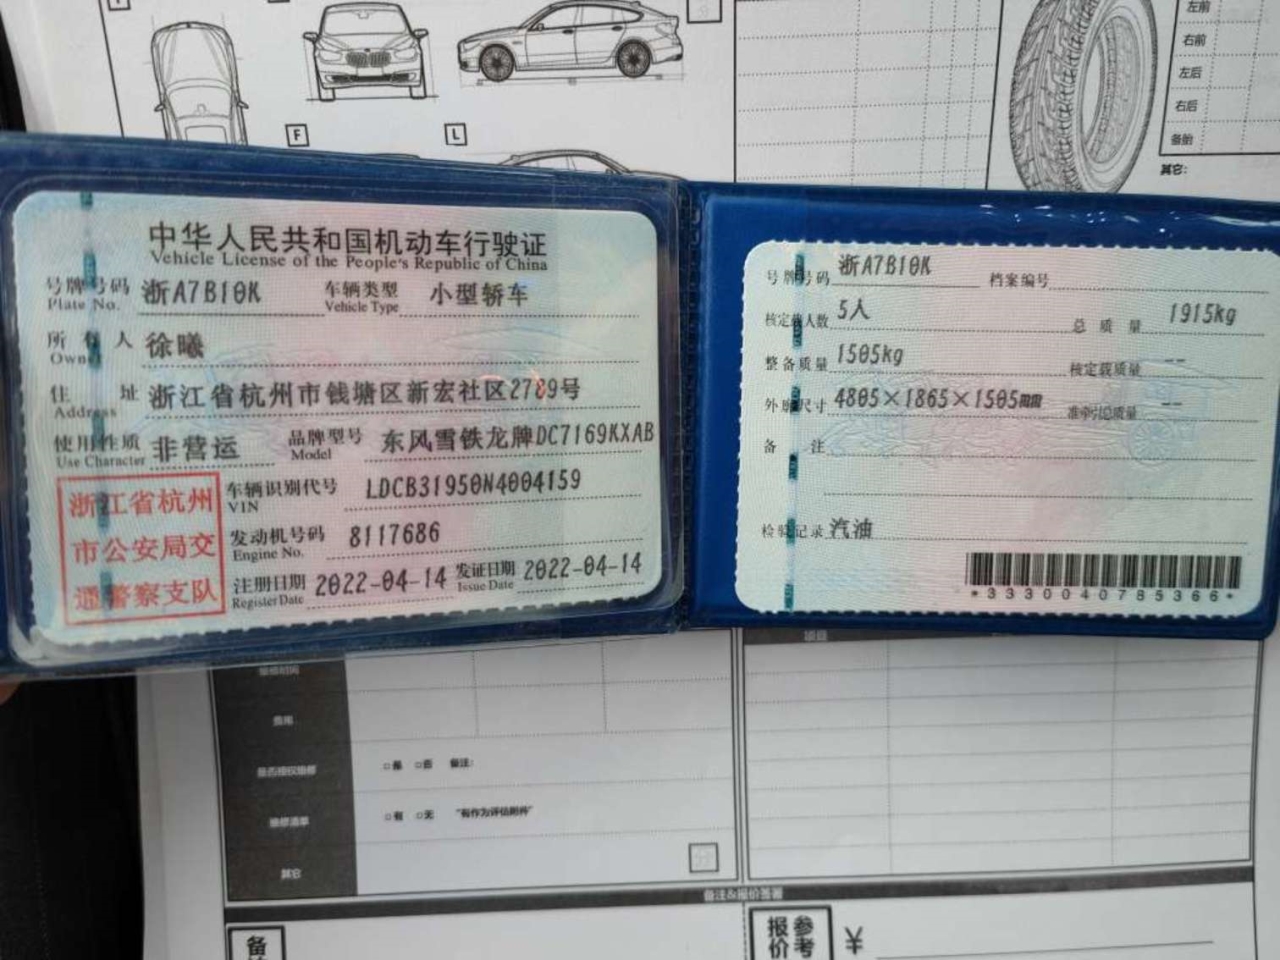 F
L
左前
右前
左后
右后
备胎
其它:
中华人民共和国机动车行驶证
Vehicle License of the People's Republic of China
号牌号码 浙A7B10K 车辆类型 小型轿车
Plate No. Vehicle Type
所有人 徐曦
Owner
住址 浙江省杭州市钱塘区新宏社区2789号
Address
使用性质 非营运 品牌型号 东风雪铁龙牌DC7169KXAB
Use Character Model
浙江省杭州
市公安局交
通警察支队
车辆识别代号 LDCB31950N4004159
VIN
发动机号码 8117686
Engine No.
注册日期 2022-04-14 发证日期 2022-04-14
Register Date Issue Date
号牌号码 浙A7B10K 档案编号
核定载人数 5人 总质量 1915kg
整备质量 1505kg 核定载质量 --
外廓尺寸 4805×1865×1505mm 准牵引总质量 --
备注
检验记录 汽油
*3330040785366*
项目
费用
是否授权维修 □是 □否 备注:
维修清单 □有 □无 "有作为评估附件"
其它
备注&报价签署
备
报价 参考 ¥